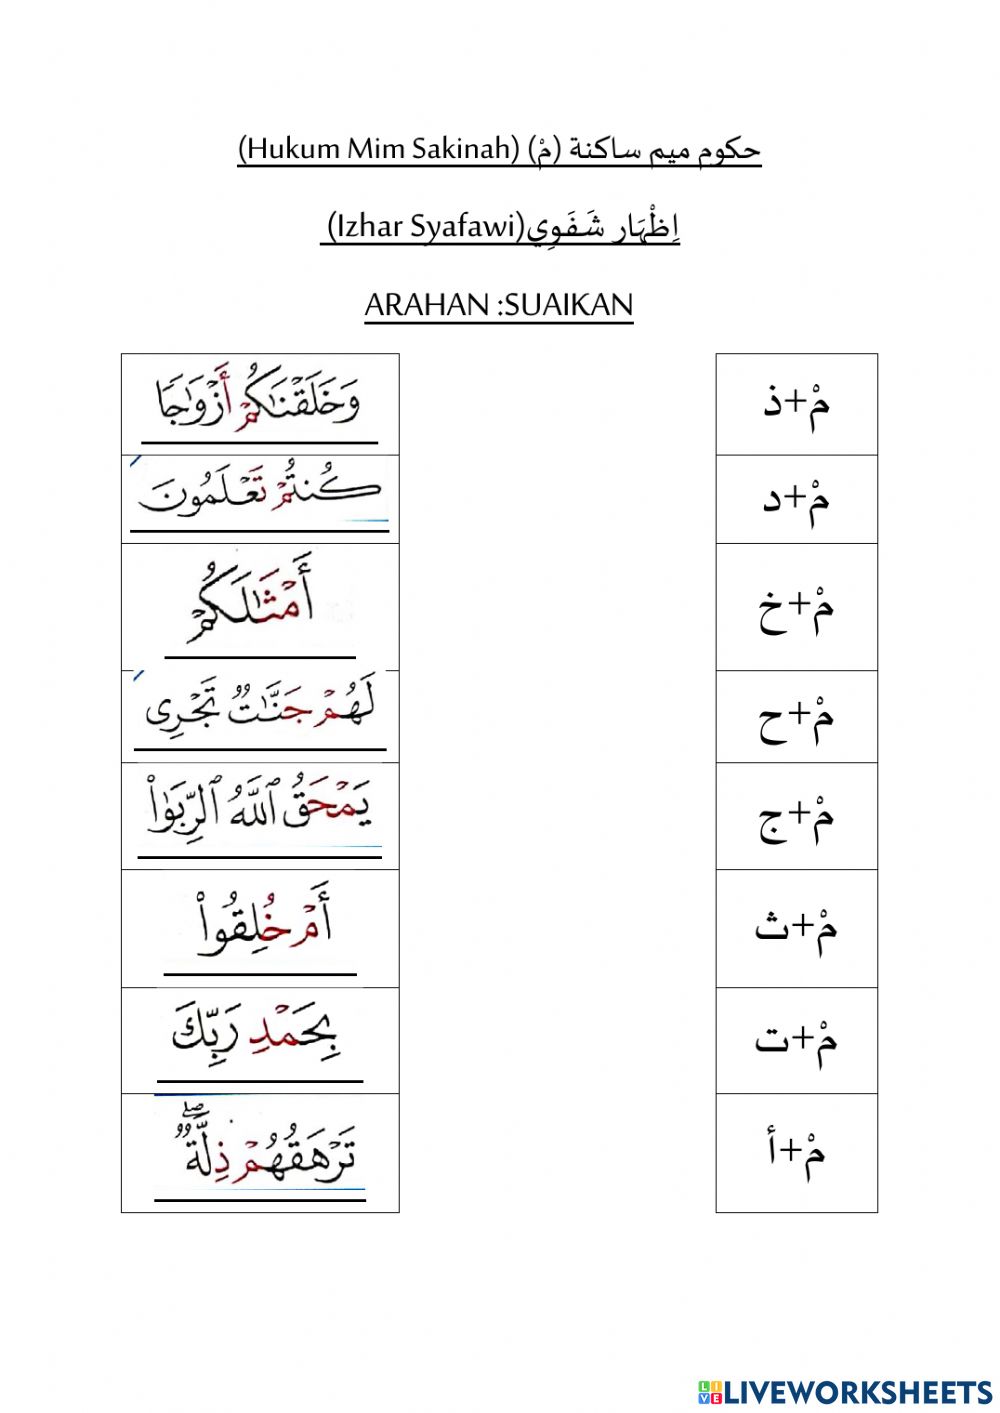 حكوم ميم ساكنة (مْ) (Hukum Mim Sakinah)
اِظْهَار شَفَوِي(Izhar Syafawi)
ARAHAN :SUAIKAN
وَخَلَقْنَـٰكُمْ أَزْوَٰجًا
مْ+ذ
كُنتُمْ تَعْلَمُونَ
مْ+د
أَمْثَـٰلَكُمْ
مْ+خ
لَهُمْ جَنَّـٰتٌ تَجْرِى
مْ+ح
يَمْحَقُ ٱللَّهُ ٱلرِّبَوٰا۟
مْ+ج
أَمْ خُلِقُوا۟
مْ+ث
بِحَمْدِ رَبِّكَ
مْ+ت
تَرْهَقُهُمْ ذِلَّةٌ ۖ
مْ+أ
LIVEWORKSHEETS